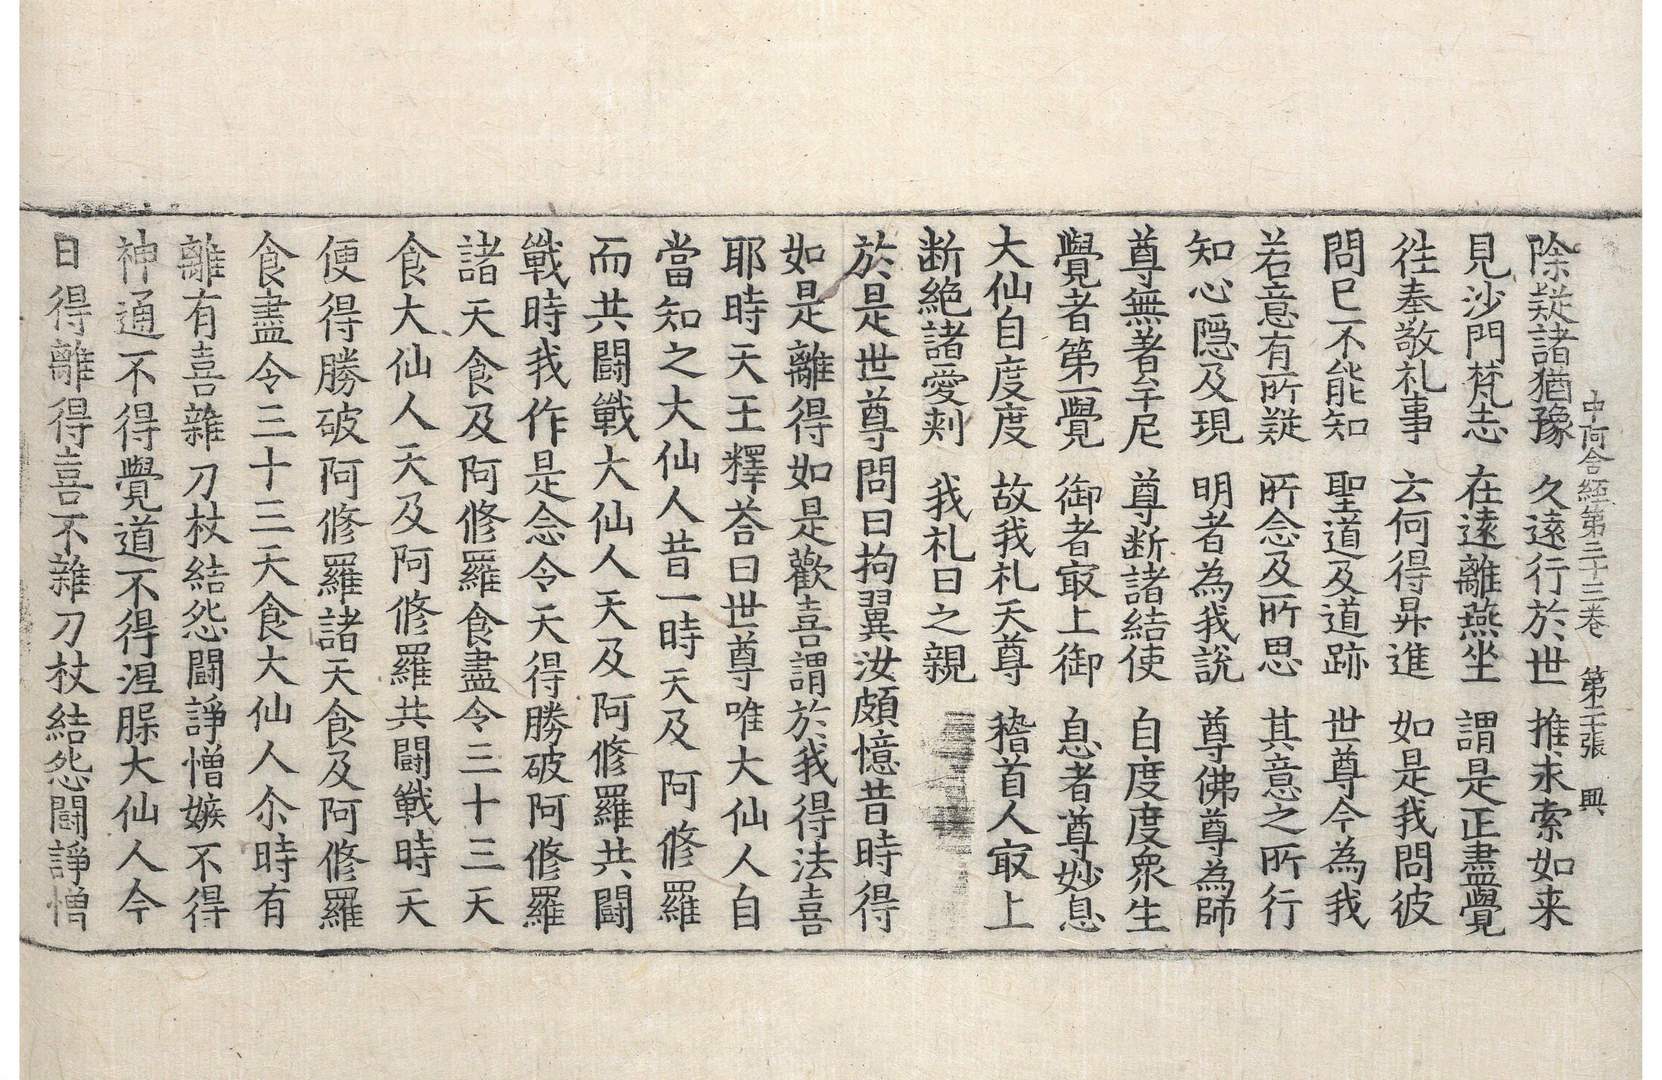 中阿含經第三十三卷　第二張　興
除疑諸猶豫　久遠行於世　推求索如来
見沙門梵志　在遠離燕坐　謂是正盡覺
往奉敬礼事　云何得昇進　如是我問彼
問已不能知　聖道及道跡　世尊今為我
若意有所疑　所念及所思　其意之所行
知心隠及現　明者為我說　尊佛尊為師
尊無著牟尼　尊断諸結使　自度度衆生
覺者第一覺　御者㝡上御　息者尊妙息
大仙自度度　故我礼天尊　稽首人㝡上
断絶諸愛刾　我礼日之親
於是世尊問曰拘翼汝頗憶昔時得
如是離得如是歡喜謂於我得法喜
耶時天王釋荅曰世尊唯大仙人自
當知之大仙人昔一時天及阿修羅
而共闘戰大仙人天及阿修羅共闘
戰時我作是念令天得勝破阿修羅
諸天食及阿修羅食盡令三十三天
食大仙人天及阿修羅共闘戰時天
便得勝破阿修羅諸天食及阿修羅
食盡令三十三天食大仙人尒時有
離有喜雜刀杖結怨闘諍憎嫉不得
神通不得覺道不得涅槃大仙人今
日得離得喜不雜刀杖結怨闘諍憎